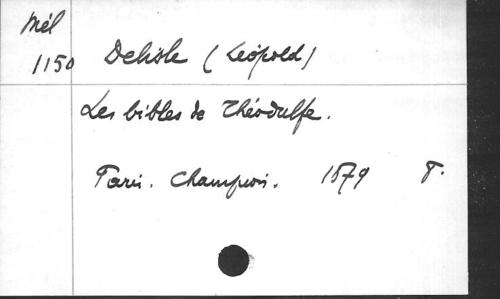 Mél
1150 Delisle (Léopold)
Les bibles de Théodulfe.
Paris. Champion. 1879 T.